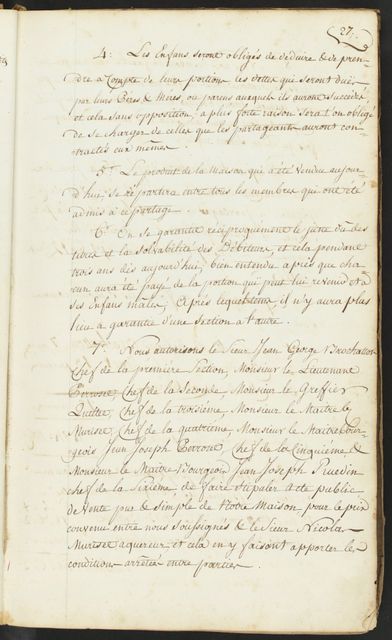 27.
4.° Les Enfans seront obligés de déduire & de pren-
dre à Compte de leurs portions les dettes qui seront dues
par leurs Peres & Meres, ou parens auxquels ils auront succédés
et cela sans opposition, à plus forte raison sera t'on obligé
de se charger de celles que les partageants auront con-
tractés eux mêmes.
5.° Le produit de la Maison qui a été vendue aujour-
d'hui, se répartira entre tous les membres qui ont été
admis à ce partage.
6.° On se garantit réciproquement le juste dû des
titres et la solvabilité des Débiteurs, et cela pendant
trois ans dès aujourd'hui, bien entendu après que cha-
cun aura été payé de la portion qui peut lui revenir & à
ses Enfans mâles, Après lequel tems, il n'y aura plus
lieu à garantie d'une section à l'autre.
7.° Nous autorisons le Sieur Jean George
Chef de la première Section, Monsieur le Lieutenant
Perrone, Chef de la Seconde, Monsieur le Greffier
chef de la troisième, Monsieur le Maître b.
Muriset, Chef de la quatrième, Monsieur le Maître Bour-
geois Jean Joseph Perrone, Chef de la Cinquième &
Monsieur le Maître Bourgeois Jean Joseph Ruedin
chef de la Sixième, de faire stipuler Acte public
de vente pure & simple de Notre Maison, pour le prix
convenu entre nous Soussignés & le Sieur Nicolas
Muriset aquereur et cela en y faisant apporter les
conditions arrêtées entre parties.